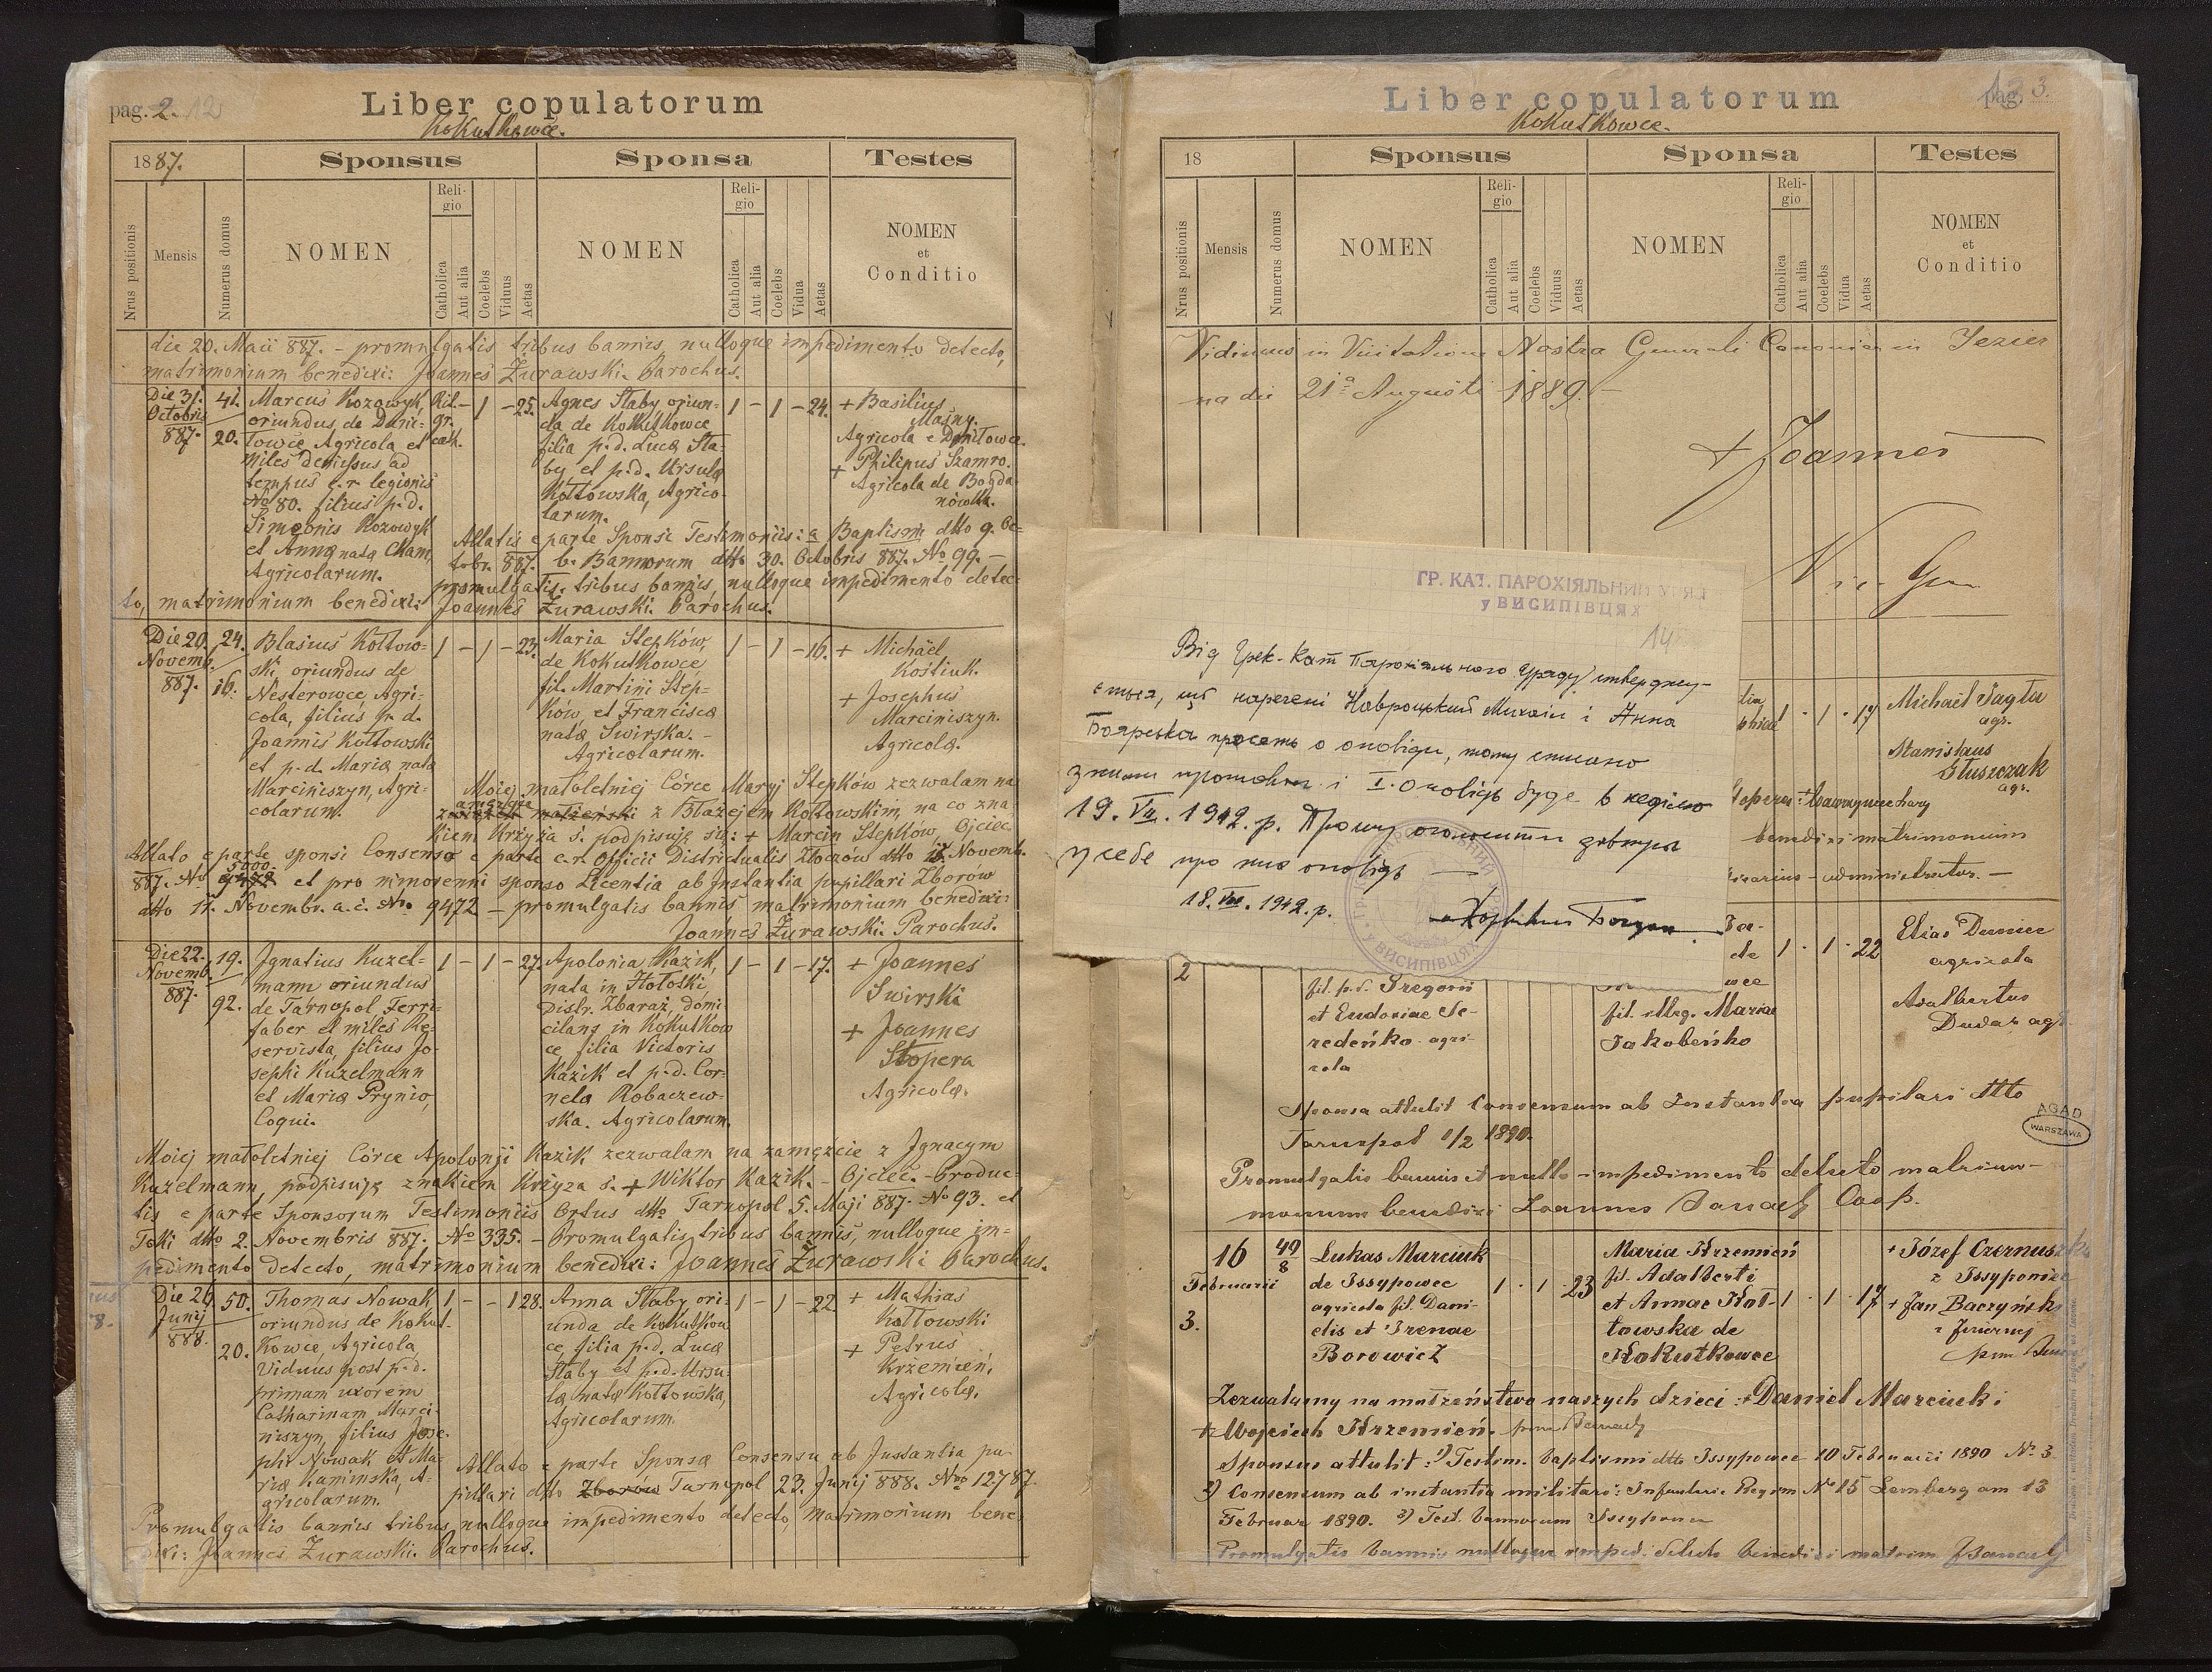 pag. 2. 12
Liber copulatorum
Kokutkowce.
1887.
Sponsus
Sponsa
Testes
Nrus positionis
Mensis
Numerus domus
NOMEN
Religio
Catholica
Aut alia
Coelebs
Viduus
Aetas
NOMEN
Religio
Catholica
Aut alia
Coelebs
Vidua
Aetas
NOMEN
et
Conditio
die 20. Maii 887. - promulgatis tribus bannis, nulloque impedimento detecto,
matrimonium benedixi: Joannes Żurawski. Parochus.
Die 31.
Octobris
887.
41.
20.
Marcus Kozowyk,
oriundus de Danie-
lowce, Agricola et
miles
ad
tempus c. r. legionis
No 80. filius p. d.
Simeonis Kozowyk
et Annæ natæ Cham,
Agricolarum.
Rit.
gr.
cath.
- 1 - 25.
Agnes Słaby oriun-
da de Kokutkowce
filia p. d. Lucæ Sła-
by et p. d. Ursulæ
Kołtowska, Agrico-
larum.
1 - 1 - 24.
+ Basilius
Maśny.
Agricola e
+ Philipus Szamro.
Agricola de Bogda-
nówka.
Allatis e parte Sponsi Testimoniis: a Baptismi dtto 9. Oc-
tobr. 887. b. Bannorum dtto 30. Octobris 887. No 99. -
promulgatis tribus bannis, nulloque impedimento detec-
to, matrimonium benedixi: Joannes Żurawski. Parochus.
Die 20.
Novemb.
887.
24.
16.
Blasius Kołtow-
ski oriundus de
Nesterowce Agri-
cola, filius p. d.
Joannis Kołtowski
et p. d. Mariæ natæ
Marciniszyn, Agri-
colarum.
1 - 1 - 23.
Maria Stepków,
de Kokutkowce
fil. Martini Step-
ków, et Francisca
natæ Swirska. -
Agricolarum.
1 - 1 - 16.
+ Michäel
Kostiuk.
+ Josephus
Marciniszyn.
Agricolæ.
Mojej małoletniej Córce Maryi Stepków zezwalam na
zamężcie
z Błażejem Kołtowskim, na co zna-
kiem Krzyża ś. podpisuję się: + Marcin Stepków, Ojciec
Allato e parte sponsi Consensu e parte c. r. Officii Districtualis Złoczów dtto Novemb.
887. No et pro minorenni sponso Licentia ab Instantia pupillari Zborów
dtto 11. Novembr. a. c. No. 9472 - promulgatis bannis matrimonium benedixi:
Joannes Żurawski. Parochus.
Die 22.
Novemb.
887.
19.
92.
Ignatius Kuzel-
mann oriundus
de Tarnopol Ferri-
faber et miles Re-
servista, filius Jo-
sephi Kuzelmann
et Mariæ Prynio,
Coqui.
1 - 1 - 27.
Apolonia Kazik,
nata in Hołoski,
Distr. Zbaraż, domi-
cilans in Kokutkow-
ce, filia Victoris
Kazik et p. d. Cor-
nela Robaczew-
ska. Agricolarum.
1 - 1 - 17.
+ Joannes
Swirski
+ Joannes
Stopera
Agricolæ.
Mojej małoletniej Córce Apolonji Kazik zezwalam na zamężcie z Ignacym
Kuzelmann, podpisuję znakiem Krzyża ś. + Wiktor Kazik. - Ojciec. - Produc-
tis e parte Sponsorum Testimoniis Ortus dtto Tarnopol 5. Maji 887. No 93. et
Toki dtto 2. Novembris 887. No 335. - Promulgatis tribus bannis, nulloque im-
pedimento detecto, matrimonium benedixi: Joannes Żurawski Parochus.
Die 26
Junij
888.
50.
20.
Thomas Nowak
oriundus de Kokut-
kowce, Agricola,
Viduus post p. d.
primam uxorem
Catharinam Marci-
niszyn, filius Jose-
phi Nowak et Ma-
riæ Kaminska, A-
gricolarum.
1 - - 1 28.
Anna Słaby ori-
unda de Kokutkow-
ce, filia p. d. Lucæ
Słaby et p. d. Ursu-
læ natæ Kołtowska,
Agricolarum.
1 - 1 - 22
+ Mathias
Kołtowski
+ Petrus
Krzemień.
Agricolæ.
Allato e parte Sponsæ Consensu ab Instantia pu-
pillari dtto Zborów Tarnopol 23. Junij 888. Nro 12787.
Promulgatis bannis tribus, nulloque impedimento detecto, matrimonium bene-
dixi: Joannes Żurawski. Parochus.
Liber copulatorum
pag. 3.
Kokutkowce.
18
Sponsus
Sponsa
Testes
Nrus positionis
Mensis
Numerus domus
NOMEN
Religio
Catholica
Aut alia
Coelebs
Viduus
Aetas
NOMEN
Religio
Catholica
Aut alia
Coelebs
Vidua
Aetas
NOMEN
et
Conditio
Vidimus in Visitatione Nostra Generali Canonica in Jezier
na die 21a Augusti 1889. -
+ Joannes
Vic. Gen
ГР. КАТ. ПАРОХІЯЛЬНИЙ УРЯД
у ВИСИПІВЦЯХ
14
Від Грек-Кат Парохіяльного Уряду стверджу-
ється, що наречені Навроцький Михаил і Анна
Боярська просять о оповіди, тому списано
з ними протокол і I. оповідь буде в неділю
19. VII. 1942. р. Прошу оголосити завтра
у себе про них оповідь
18. VII. 1942. р.
1 - 1 - 17
Michaël Jagła
agr.
Stanislaus
Głuszczak
agr.
benedixi matrimonium
administrator. -
1 - 1 - 22
Elias Duniec
agricola
Adalbertus
Dudar agr.
2
fil. p. d. Gregorii
et Eudoxiae Se-
redeńko agri-
cola
fil. illeg. Mariae
Jakobeńko
Sponsa attulit Consensum ab Instantia pupilari dtto
Tarnopol 1/2 1890.
Promulgatis bannis et nullo impedimento detecto matrimo-
monium benedixi Joannes Banach Coop.
AGAD
WARSZAWA
16
Februarii
3.
49
8
Lukas Marciuk
de Issypowce
agricola fil. Dani-
elis et Irenae
Borowicz
1 - 1 - 23
Maria Krzemień
fil. Adalberti
et Annae Koł-
towska de
Kokutkowce
1 - 1 - 17
+ Józef Czernuszka
z Issypowiec
+ Jan Baczyński
Zezwalamy na małżeństwo naszych dzieci: + Daniel Marciuk i
+ Wojciech Krzemień. Banach
Sponsus attulit: 1) Testim. baptismi dtto Issypowce 10 Februarii 1890 No 3
2) Consensum ab instantia militari: Infanterie Regim No 15 Lemberg am 13
Februar 1890. 3) Test. bannorum Issypowce
Promulgatis bannis nulloque imped. detecto benedixi matrim JBanach